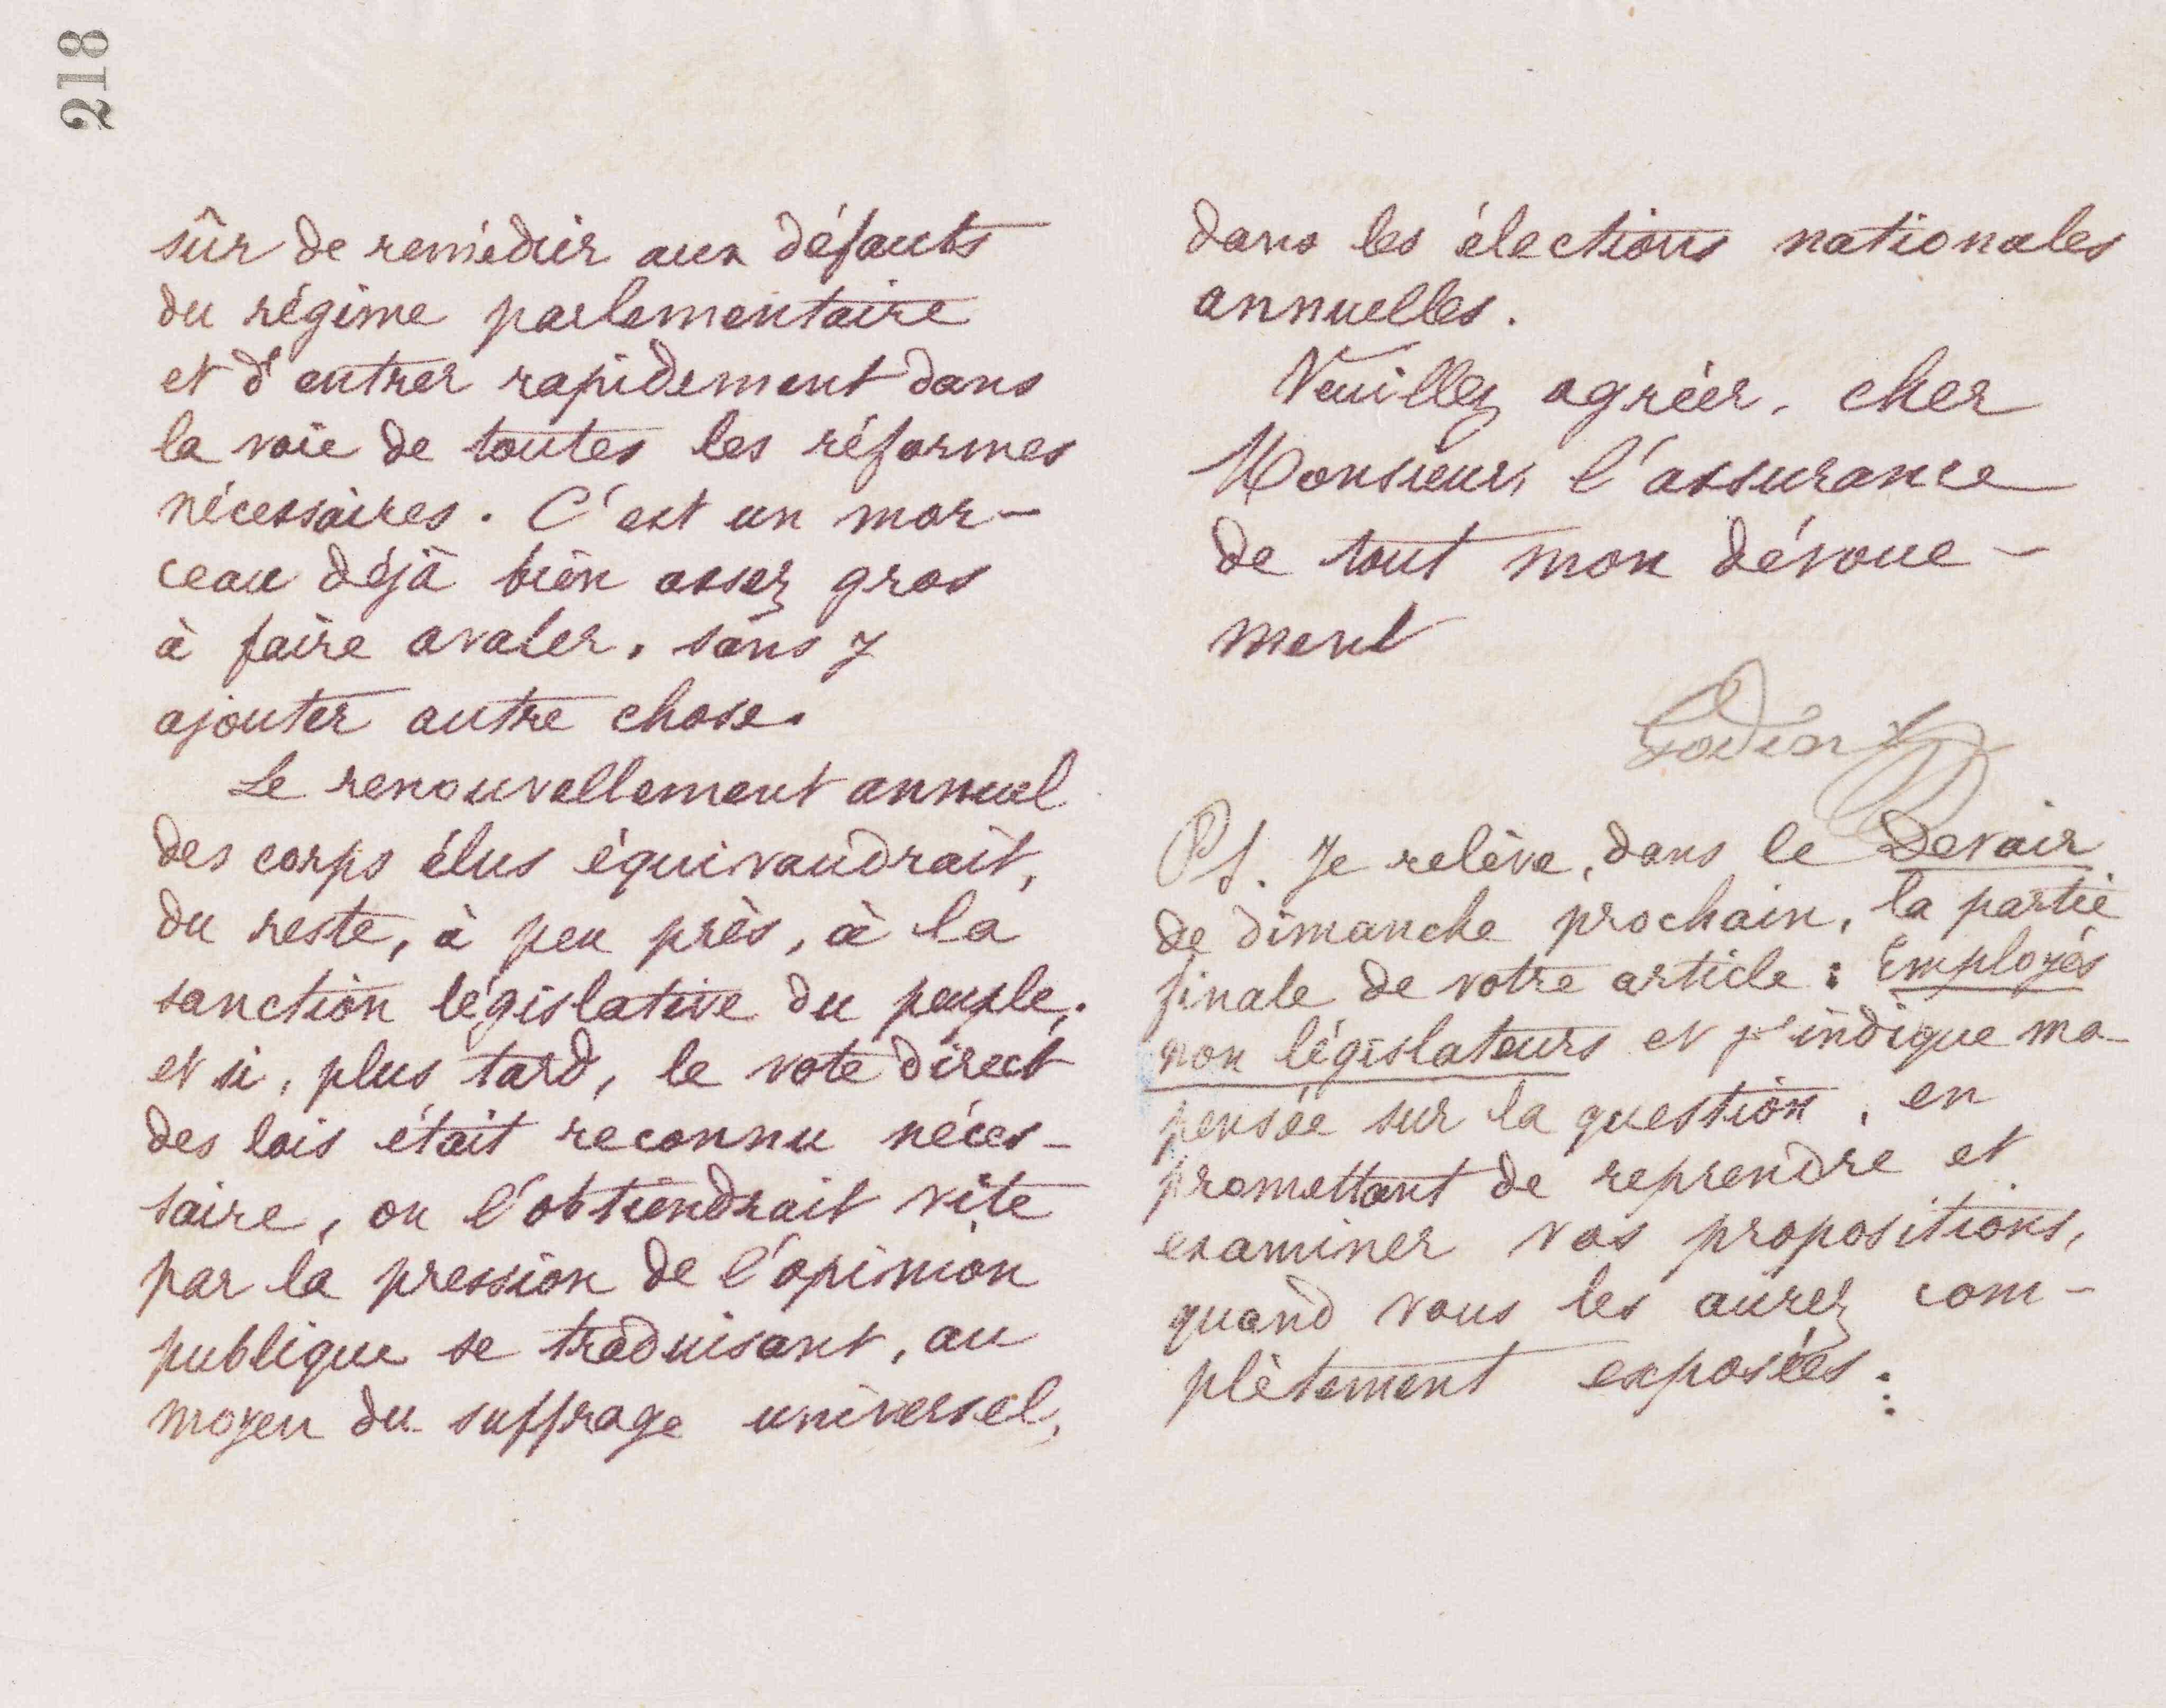 218
sûr de remédier aux défauts
du régime parlementaire
et d'entrer rapidement dans
la voie de toutes les réformes
nécessaires. C'est un mor-
ceau déjà bien assez gros
à faire avaler, sans y
ajouter autre chose.
Le renouvellement annuel
des corps élus équivaudrait,
du reste, à peu près, à la
sanction législative du peuple;
et si, plus tard, le vote direct
des lois était reconnu néces-
saire, on l'obtiendrait vite
par la pression de l'opinion
publique se traduisant, au
moyen du suffrage universel,
dans les élections nationales
annuelles.
Veuillez agréer, cher
Monsieur, l'assurance
de tout mon dévoue-
ment
Godin
PS. Je relève, dans le Devoir
de dimanche prochain, la partie
finale de votre article : Employés
non législateurs et j'indique ma
pensée sur la question, en
promettant de reprendre et
examiner vos propositions,
quand vous les aurez com-
plètement exposées.